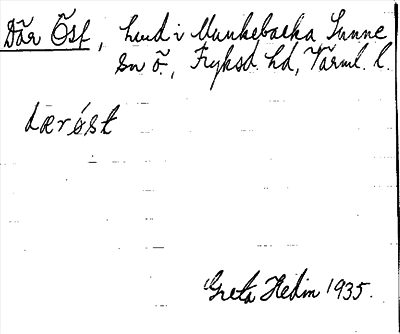 Där Öst, hmd i Munkebacka Sunne
sn ö., Fryksd. hd, Värml. l.
dærøst
Greta Hedin 1935.